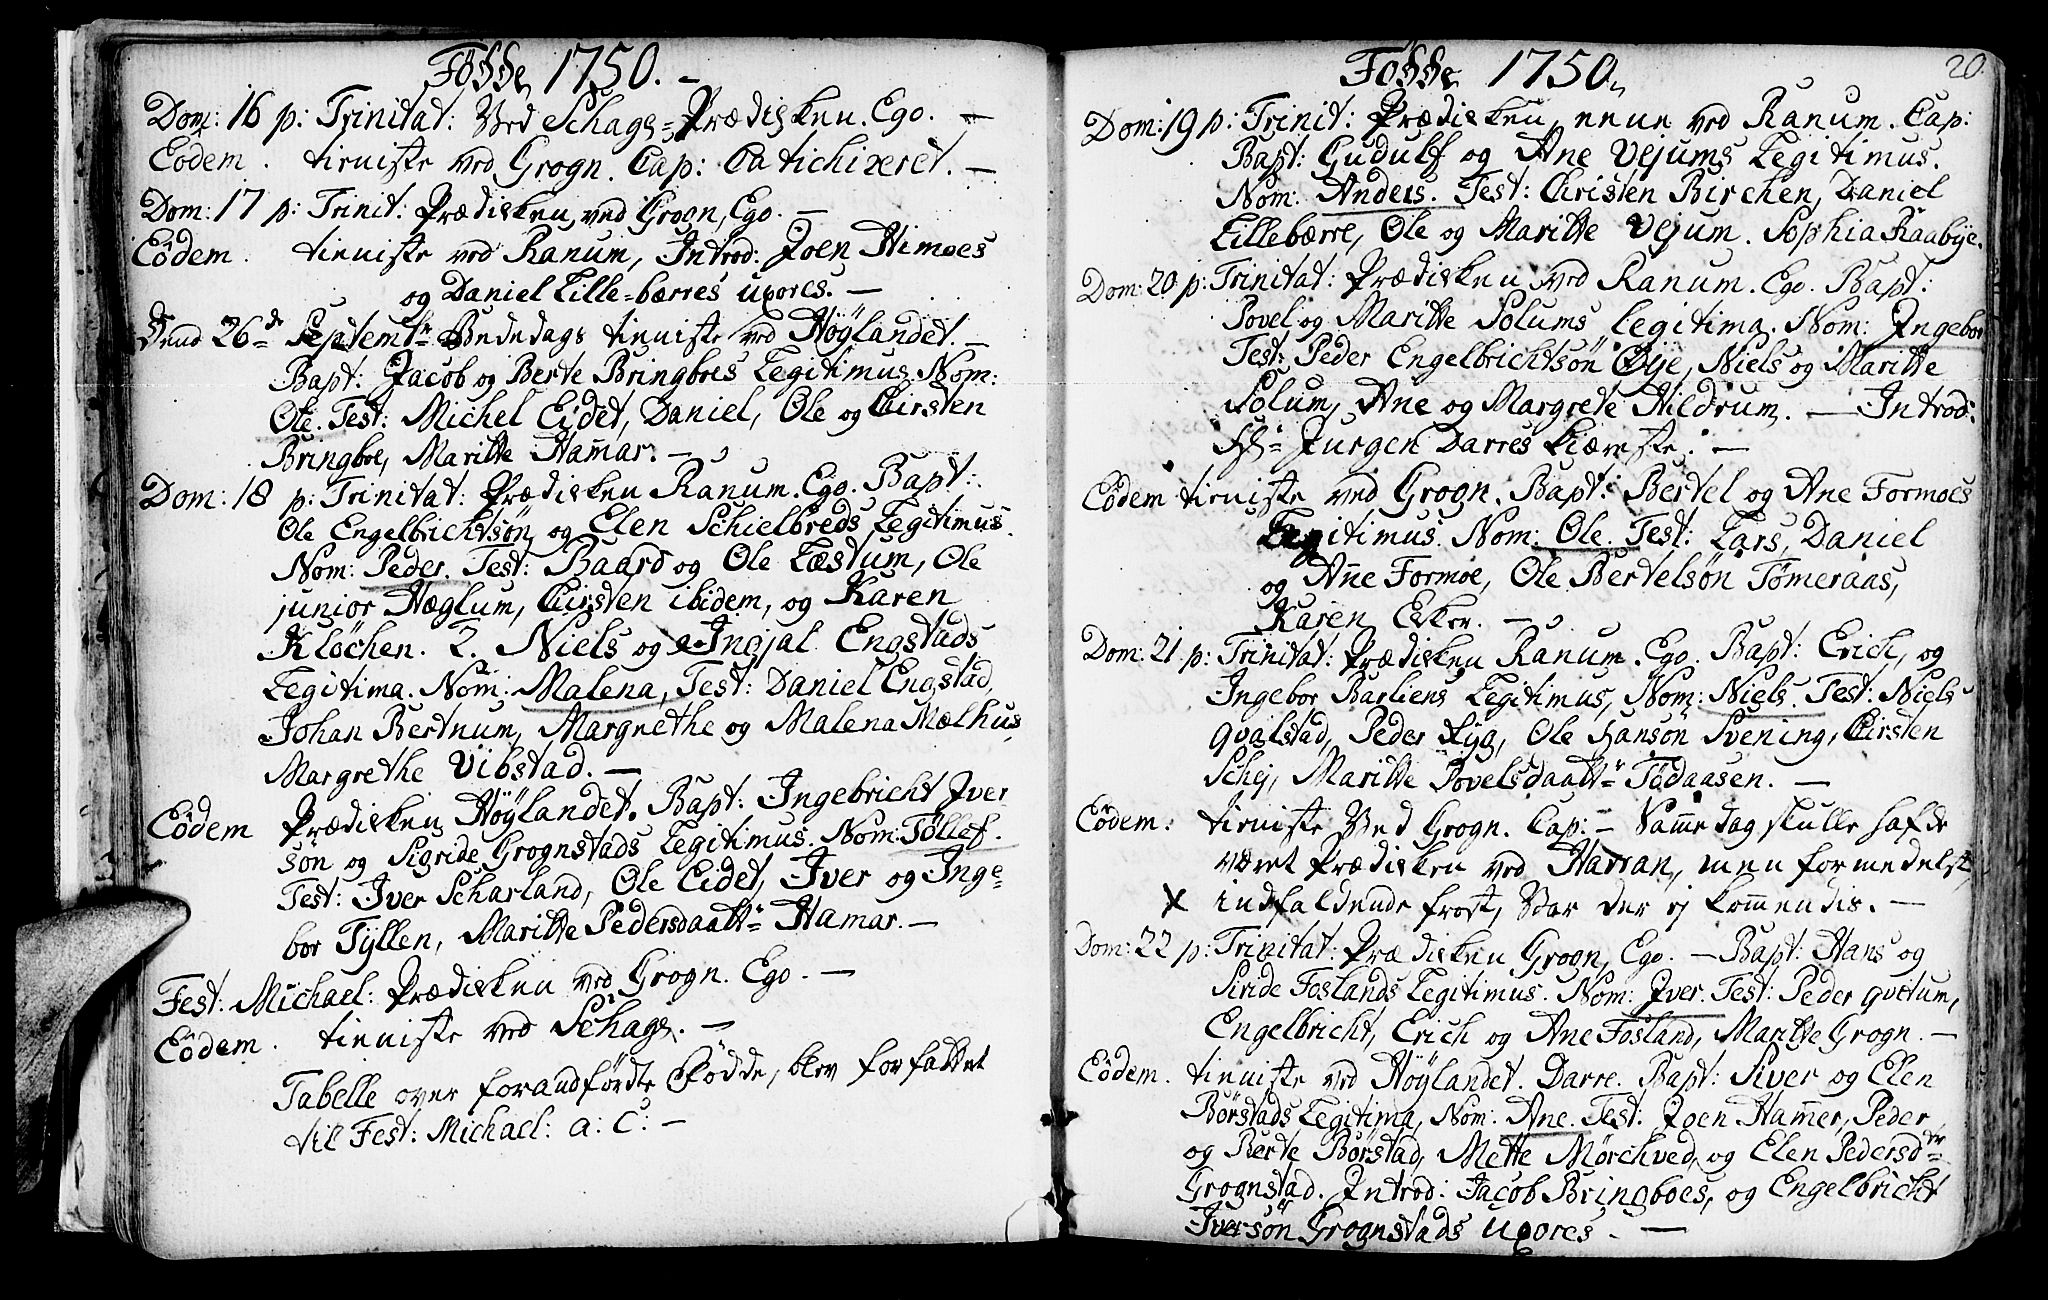 Födde 1750. –
Dom: 16 p: Trinitat: Ved Schage=Prædicken. Ego. –
Eôdem. tieniste ved Grogn. Cap: Catichizeret. –
Dom: 17 p: Trinit: Prædicken ved Grogn, Ego. –
Eôdem. tieniste ved Ranum, Introd: Joen Himoes
og Daniel Lille=bærres uxores. –
Dend 26de Septembr Bededags tieniste ved Höylandet. –
Bapt: Jacob og Berte Bringboes Legitimus. Nom:
Ole. Test: Michel Eidet, Daniel, Ole og Chirsten
Bringboe, Maritte Hammar. –
Dom: 18 p: Trinitat: Prædicken Ranum. Ego. Bapt:
Ole Engelbrichtsön og Elen Schielbreds Legitimus.
Nom: Peder. Test: Baard og Ole Læstum, Ole
junior Hæglum, Chirsten ibidem, og Karen
Klöchen. 2. Niels og Ingjal Engstads
Legitima. Nom: Malena, Test: Daniel Engstad,
Johan Bertnum, Margrethe og Malena Mælhus,
Margrethe Vibstad. –
Eôdem Prædicken Höylandet. Bapt: Ingebricht Iver
sön og Sigride Grognstads Legitimus. Nom: Töllef.
Test: Iver Scharland, Ole Eidet, Iver og Inge=
bor Tyllen, Maritte Pedersdaattr Hamar. –
Fest: Michael: Prædicken ved Grogn. Ego. –
Eôdem. tieniste ved Schage. –
Tabelle over foranförte Födde, blev forfattet
til Fest: Michael: a: C: –
Födde 1750. 20.
Dom: 19 p: Trinit: Prædicken, nene ved Ranum. Cap:
Bapt: Gudulf og Ane Vejums Legitimus.
Nom: Anders. Test: Christen Birchen, Daniel
Lillebærre, Ole og Maritte Vejum. Sophia Raabye.
Dom: 20 p: Trinitat: Prædicken ved Ranum. Ego. Bapt:
Povel og Maritte Solums Legitima. Nom: Ingebor
Test: Peder Engelbrichtsön Öye, Niels og Maritte
Solum, Ane og Margrete Hildrum. – Introd:
Hr Jurgen Darres kiæreste. –
Eôdem tieniste ved Grogn. Bapt: Bertel og Ane Formoes
Legitimus. Nom: Ole. Test: Lars, Daniel
og Anne Formoe, Ole Bertelsön Tömeraas,
Karen Ekker. –
Dom: 21 p: Trinitat: Prædicken Ranum. Ego. Bapt: Erich, og
Ingebor Barliens Legitimus, Nom: Niels. Test: Niels
Qvalstad, Peder Lyg, Ole Hansön Svening, Chirsten
Schej, Maritte Povelsdaattr Tödaasen. –
Eôdem: tieniste Ved Grogn. Cap: – Samme dag skulle hafde
været Prædicken ved Harran, men formedelst
X indfaldende frost, Var der ej kommendis. –
Dom: 22 p: Trinitat: Prædicken Grogn, Ego. – Bapt: Hans og
Siride Foslands Legitimus. Nom: Iver. Test: Peder Qvetum,
Engelbricht, Erich og Ane Fosland, Maritte Grogn. –
Eôdem. tieniste ved Höylandet. Darre. Bapt: Siver og Elen
Börstads Legitima, Nom: Ane. Test: Joen Hammer, Peder
og Berte Börstad, Mette Mörchved, og Elen Pedersdtr
Grognstad. Introd: Jacob Bringboes, og Engelbricht
Iversön Grognstads uxores. –